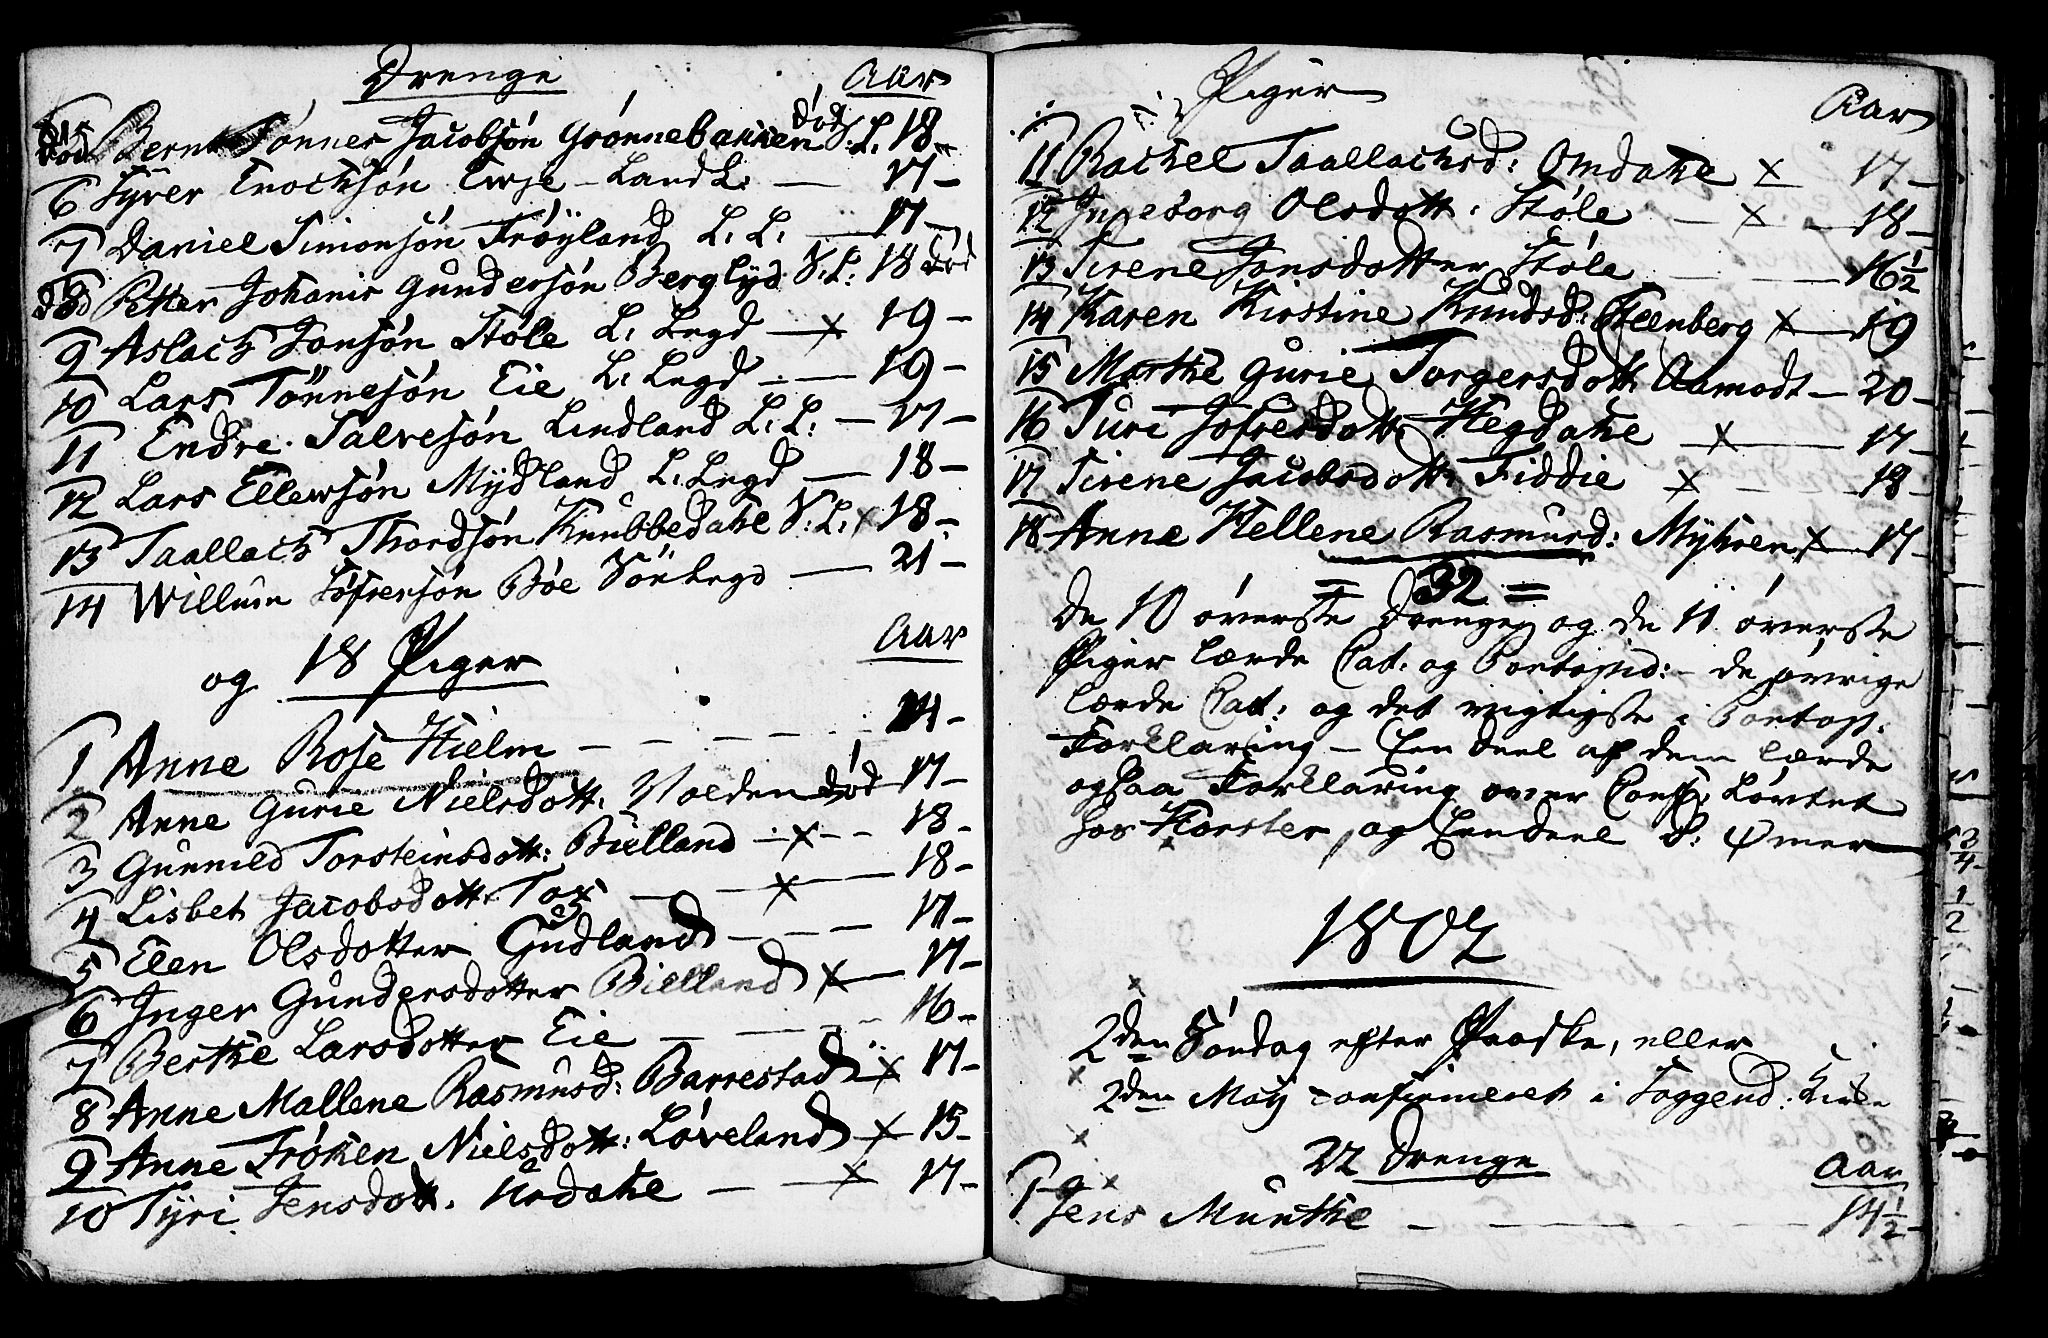 Drenge Aar
død Bernt Tønnes Jacobsön Grönnebakken død S: L. 18-
6 Syver Enochsön Ewje - Land L: — 17-
7 Daniel Simonsön Fröyland L. L. — 17-
død 8 Petter Johanis Gundersön Berglyd S. L: 18 død
9 Aslach Jonsön Støle L: Legd — x 19-
10 Lars Tönnesön Eie L. Legd — 19-
11 Endre Salvesön Lindland L. L: — 17-
12 Lars Ellewsön Mydland L. Legd — 18-
13 Taallach Thordsön Knubbedahl S: L: x 18-
14 Willum Söfrensön Böe Sönlegd — 21-
og 18 Piger Aar
1 Anne Rose Hielm — — — 14-
2 Anne Gurie Nielsdott. Volden død 17-
3 Gunnild Torsteinsdott: Bielland — x — 18-
4 Lisbet Jacobsdott. — x — 18-
5 Elen Olsdotter Gudland — — — 17-
6 Inger Gundersdotter Bielland x — 17-
7 Berthe Larsdotter Eie — — — 16-
8 Anne Mallene Rasmusd: Barrestad x 17-
9 Anne Fröken Nielsdott: Löveland x 15-
10 Syri Jensdott. Urdahl — x 17-
Piger Aar
11 Rachel Taallachsd: Omdahl x 17-
12 Ingeborg Olsdott: Støle — x — 18-
13 Sirene Jonsdotter Støle — — 16 1/2
14 Karen Kirstine Knudsd: Steenberg x — 19
15 Marthe Gurie Torgersdott. Aamodt — 20-
16 Siri Jofresdott. Hegdahl — x — 17-
17 Sirene Jacobsdott. Fiddie x — 18-
18 Anne Hellene Rasmusd: Myhren x — 17-
= 32 =
De 10 överste Drenge og de 11 överste
Piger lærde Cat: og Pontopid: - de övrige
lærde Cat: og det vigtigste i Pontop.
Forklaring - Een deel af dem lærde
ogsaa Forklaring over
hos Horster, og Eendeel
1802
2den Søndag efter Paaske, eller
2den May confirmeret i Soggend: Kirke
22 Drenge Aar
1 Jens Munthe — — — 14 1/2-